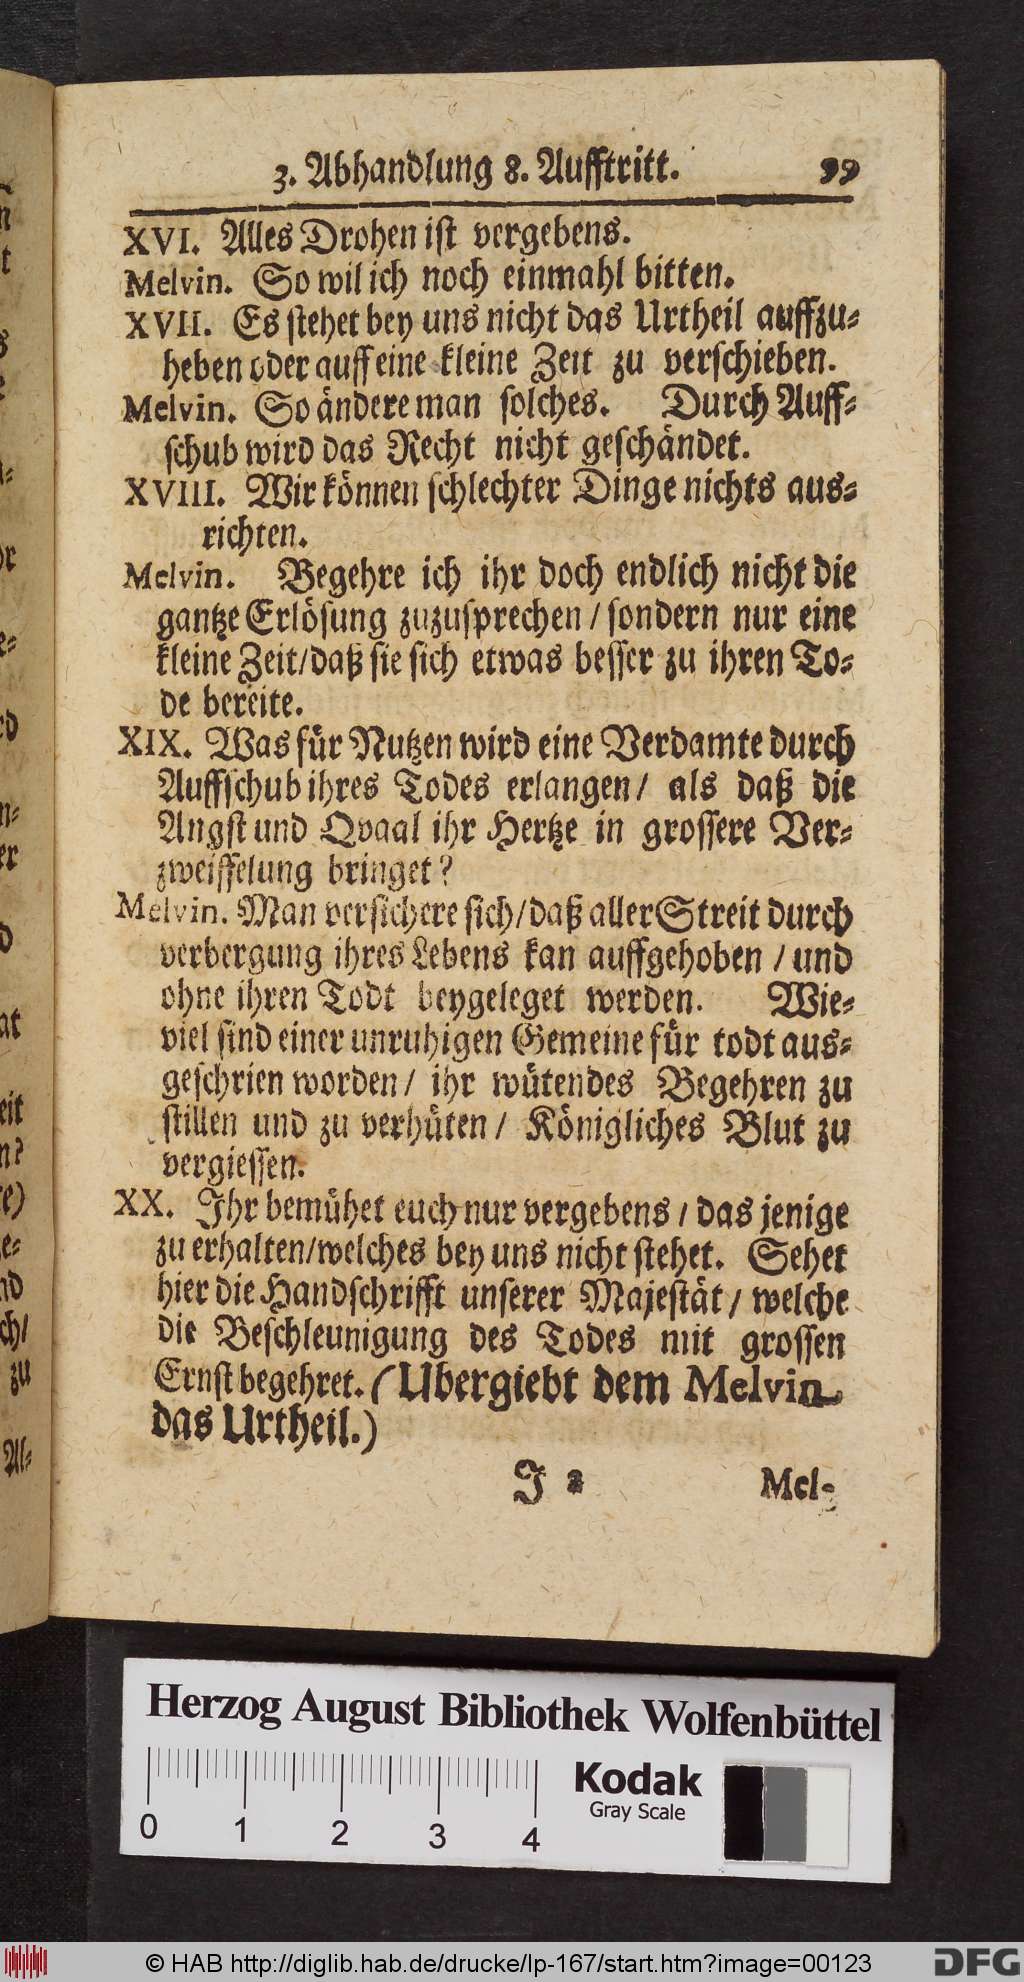 3. Abhandlung 8. Aufftritt. 99
XVI. Alles Drohen ist vergebens.
Melvin. So wil ich noch einmahl bitten.
XVII. Es stehet bey uns nicht das Urtheil auffzu-
heben oder auff eine kleine Zeit zu verschieben.
Melvin. So ändere man solches. Durch Auff-
schub wird das Recht nicht geschändet.
XVIII. Wir können schlechter Dinge nichts aus-
richten.
Melvin. Begehre ich ihr doch endlich nicht die
gantze Erlösung zuzusprechen / sondern nur eine
kleine Zeit/ daß sie sich etwas besser zu ihren To-
de bereite.
XIX. Was für Nutzen wird eine Verdamte durch
Auffschub ihres Todes erlangen/ als daß die
Angst und Qvaal ihr Hertze in grossere Ver-
zweiffelung bringet?
Melvin. Man versichere sich/ daß aller Streit durch
verbergung ihres Lebens kan auffgehoben / und
ohne ihren Todt beygeleget werden. Wie-
viel sind einer unruhigen Gemeine für todt aus-
geschrien worden/ ihr wütendes Begehren zu
stillen und zu verhüten/ Königliches Blut zu
vergiessen.
XX. Ihr bemühet euch nur vergebens / das jenige
zu erhalten/welches bey uns nicht stehet. Sehet
hier die Handschrifft unserer Majestät / welche
die Beschleunigung des Todes mit grossen
Ernst begehret. (Ubergiebt dem Melvin
das Urtheil.)
J 2 Mel-
n
t
s
e
or
e-
rd
n-
er
d
at
eit
n?
re)
e-
nd
ch/
zu
Al-
Herzog August Bibliothek Wolfenbüttel
Kodak
Gray Scale
0 1 2 3 4
© HAB http://diglib.hab.de/drucke/lp-167/start.htm?image=00123
DFG